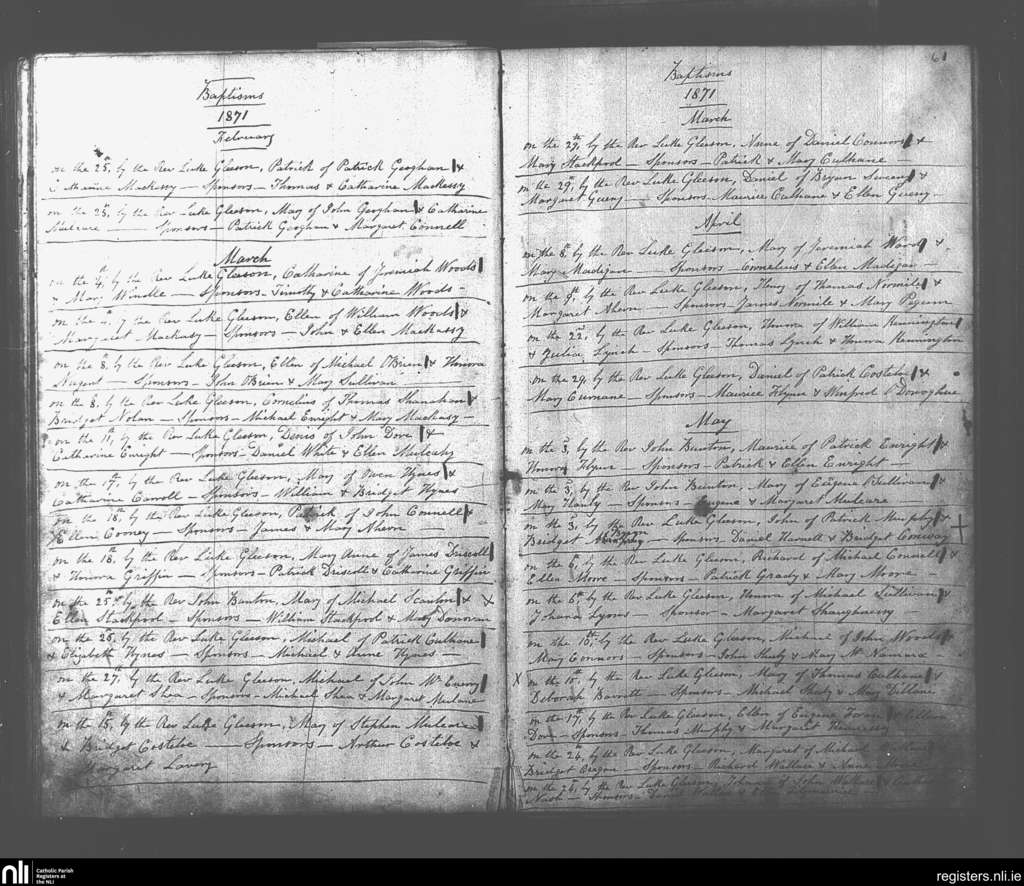 Baptisms
1871
February
on the 25th, by the Rev Luke Gleeson, Patrick of Patrick Geoghan &
Catharine Mackessy — Sponsors — Thomas & Catharine Mackessy
on the 25, by the Rev Luke Gleeson, Mary of John Geoghan & Catharine
Mulcare — Sponsors — Patrick Geoghan & Margaret Connell
March
on the 4th, by the Rev Luke Gleeson, Catharine of Jeremiah Woods
& Mary Windle — Sponsors — Timothy & Catharine Woods —
on the 4, by the Rev Luke Gleeson, Ellen of William Woods &
Margaret Mackasy — Sponsors — John & Ellen Mackassy
on the 8, by the Rev Luke Gleeson, Ellen of Michael O'Brien & Honora
Nugent — Sponsors — John O'Brien & Mary Sullivan
on the 8, by the Rev Luke Gleeson, Cornelius of Thomas Shanahan &
Bridget Nolan — Sponsors — Michael Enright & Mary Mackasy —
on the 11th, by the Rev Luke Gleeson, Denis of John Dore &
Catharine Enright — Sponsors — Daniel White & Ellen Mulcahy
on the 17th, by the Rev Luke Gleeson, Mary of Owen Hynes &
Catharine Carroll — Sponsors — William & Bridget Hynes
on the 18th, by the Rev Luke Gleeson, Patrick of John Connell &
Ellen Cooney — Sponsors — James & Mary Ahern —
on the 18, by the Rev Luke Gleeson, Mary Anne of James Driscoll
& Honora Griffin — Sponsors — Patrick Driscoll & Catharine Griffin
on the 25th by the Rev John Bunton, Mary of Michael Scanlon & X
Ellen Stackpool — Sponsors — William Stackpool & Mary Donovan
on the 26, by the Rev Luke Gleeson, Michael of Patrick Culhane
& Elizabeth Hynes — Sponsors — Michael & Anne Hynes —
on the 27th, by the Rev Luke Gleeson, Michael of John McEnery
& Margaret Shea — Sponsors — Michael Shea & Margaret Mulcare
on the 15th, by the Rev Luke Gleeson, Mary of Stephen Mulcare
& Bridget Costeloe — Sponsors — Arthur Costeloe &
Margaret Lavery
61
Baptisms
1871
March
on the 29th, by the Rev Luke Gleeson, Anne of Daniel Connors &
Mary Stackpool — Sponsors — Patrick & Mary Culhane —
on the 29, by the Rev Luke Gleeson, Daniel of Bryan &
Margaret — Sponsors — Maurice Culhane & Ellen
April
on the 8th, by the Rev Luke Gleeson, Mary of Jeremiah Woods &
Mary Madigan — Sponsors — Cornelius & Ellen Madigan
on the 9th, by the Rev Luke Gleeson, Henry of Thomas Normile
Margaret Ahern — Sponsors James Normile & Mary
on the 22, by the Rev Luke Gleeson, Honora of William Hennington
& Julia Lynch — Sponsors — Thomas Lynch & Honora Hennington
on the 29, by the Rev Luke Gleeson, Daniel of Patrick Costeloe &
Mary Curnane — Sponsors — Maurice Flynn & Winifred O'Donoghue
May
on the 3, by the Rev John Bunton, Maurice of Patrick Enright &
Honora Flynn — Sponsors — Patrick & Ellen Enright —
on the 3, by the Rev John Bunton, Mary of Eugene O'Sullivan &
Mary Hanly — Sponsors — Eugene & Margaret Mulcare
on the 3, by the Rev Luke Gleeson, John of Patrick Murphy & +
Bridget — Sponsors Daniel Harnett & Bridget Conway
on the 6, by the Rev Luke Gleeson, Richard of Michael Connell &
Ellen Moore — Sponsors — Patrick Grady & Mary Moore —
on the 6th by the Rev Luke Gleeson, Honora of Michael Sullivan &
Johana Lyons — Sponsor — Margaret Shaughnessy —
on the 10th, by the Rev Luke Gleeson, Michael of John Woods &
Mary Connors — Sponsors — John Sheehy & Mary McNamara
X on the 10th, by the Rev Luke Gleeson, Mary of Thomas Culhane &
Deborah Barrett — Sponsors — Michael Sheehy & Mary Dillane
on the 17th, by the Rev Luke Gleeson, Ellen of Eugene Foran
Dore — Sponsors — Thomas Murphy & Margaret Hennessy
on the 24, by the Rev Luke Gleeson, Margaret of Michael
Bridget — Sponsors — Richard Wallace & Anne
on the 26, by the Rev Luke Gleeson, of John Wallace &
Nash — Sponsors —
nli
Catholic Parish
Registers at
the NLI
registers.nli.ie